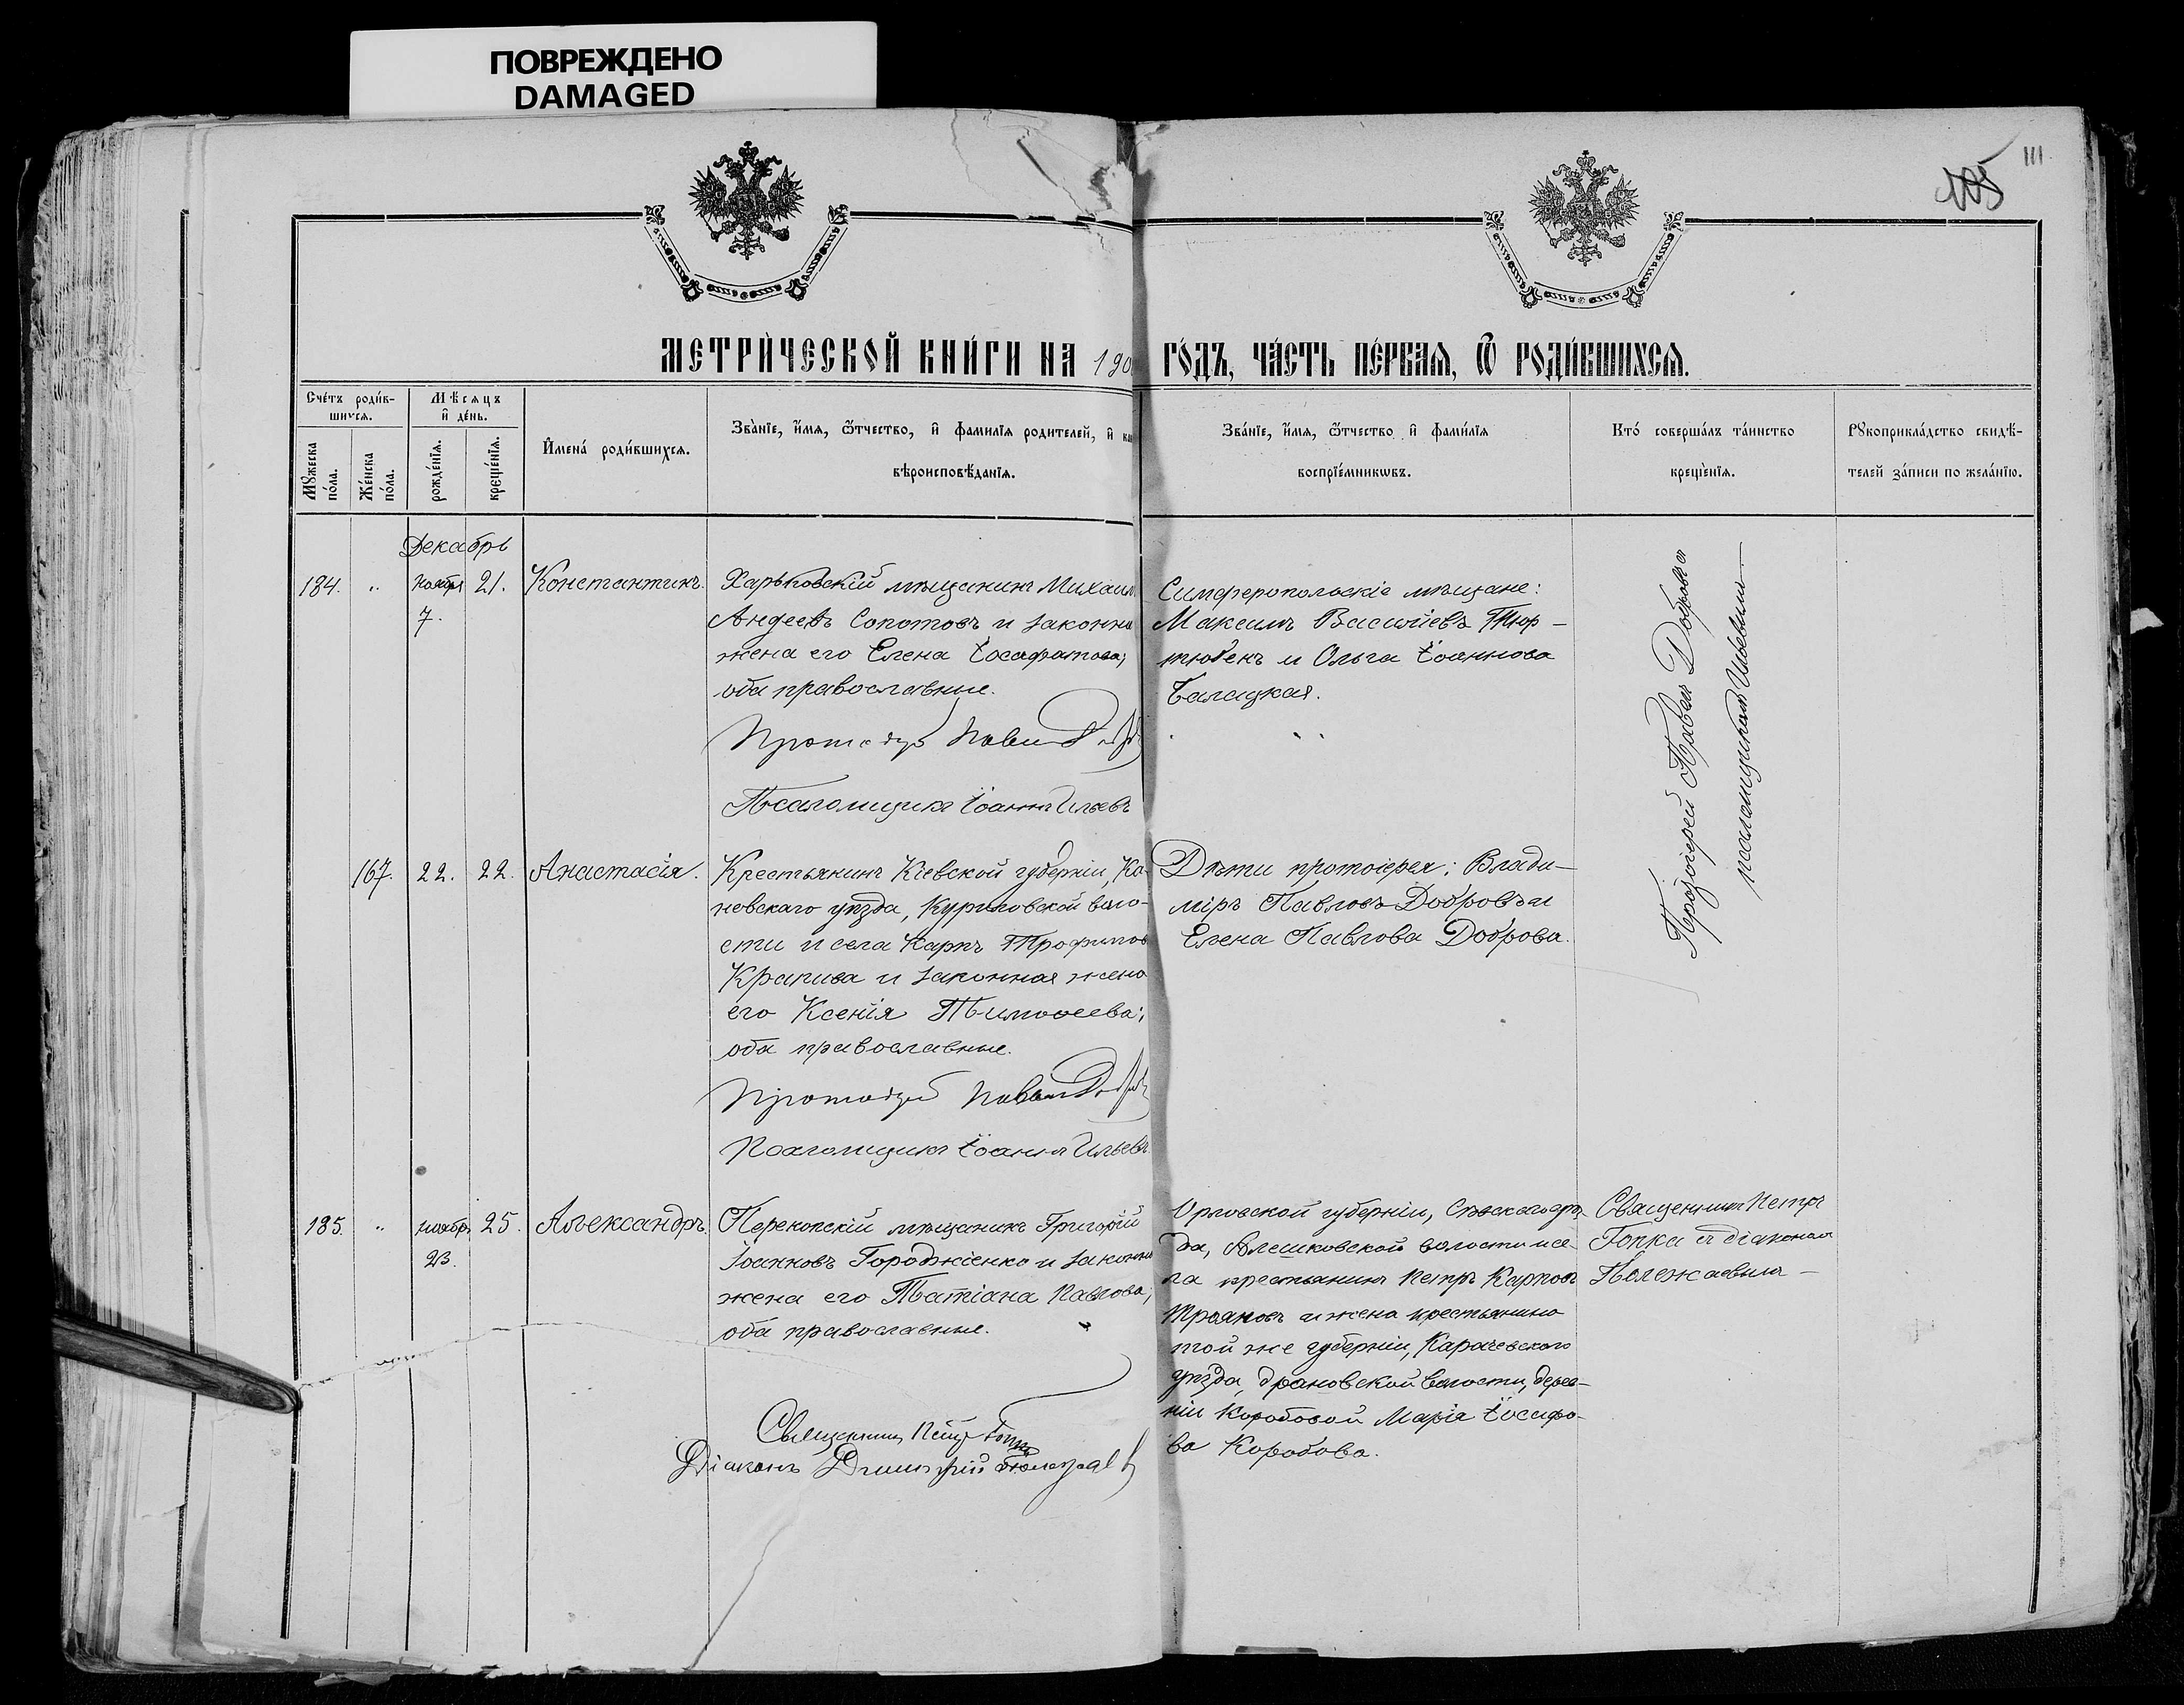 ПОВРЕЖДЕНО
DAMAGED
105
111
МЕТРИ́ЧЕСКОЙ КНИ́ГИ НА 190
ГО́ДЪ, ЧА́СТЬ ПЕ́РВАЯ, Ѿ РОДИ́ВШИХСЯ.
Сче́тъ роди́в-
шихся.
Мꙋ́жеска по́ла.
Же́нска по́ла.
Мѣ́сяцъ
и҆ де́нь.
рожде́нїя.
креще́нїя.
И҆мена́ роди́вшихся.
Зва́нїе, и҆́мя, ѻ҆́тчество, и҆ фами́лїя роди́телей, и҆ как
вѣроисповѣ́данїя.
Зва́нїе, и҆́мя, ѻ҆́тчество и҆ фами́лїя
воспрїе́мникѡвъ.
Кто́ соверша́лъ та́инство
креще́нїя.
Рꙋкоприкла́дство свидѣ́-
телей за́писи по жела́нїю.
Декабрь
184. " Ноября 7. 21. Константинъ.
Харьковскій мѣщанинъ Михаил
Андеевъ Сопотовъ и законна
жена его Елена Іосафатова;
оба православные.
Протоіерей Павелъ Добровъ
Псаломщикъ Іоаннъ Ильевъ
Симферопольскіе мѣщане:
Максимъ Васильевъ Тюр-
тюбекъ и Ольга Іоаннова
Балацкая.
Протоіерей Павелъ Добровъ съ
псаломщикомъ Ильевымъ
167. 22. 22. Анастасія.
Крестьянинъ Кіевской губерніи, Ка-
невскаго уѣзда, Куриловской воло-
сти и села Карпъ Трофимов
Крапива и законная жена
его Ксенія Тимоѳеева;
оба православные.
Протоіерей Павелъ Добровъ
Псаломщикъ Іоаннъ Ильевъ
Дѣти протоіерея: Влади-
міръ Павловъ Добровъ и
Елена Павлова Доброва.
185. " Ноябр 23. 25. Александръ.
Перекопскій мѣщанинъ Григорій
Іоанновъ Городжіенко и законна
жена его Татіана Павлова;
оба православные.
Священникъ Петръ Гопка
Діаконъ Димитрій Полежаевъ
Орловской губерніи, Сѣвскаго уѣз-
да, Алешковской волости и се-
ла крестьянинъ Петръ Карповъ
Трояновъ и жена крестьянина
той же губерніи, Карачевскаго
уѣзда, Драновской волости, дерев-
ни Коробовой Марія Іосифо-
ва Коробова.
Священникъ Петръ
Гопка съ діакономъ
Полежаевымъ